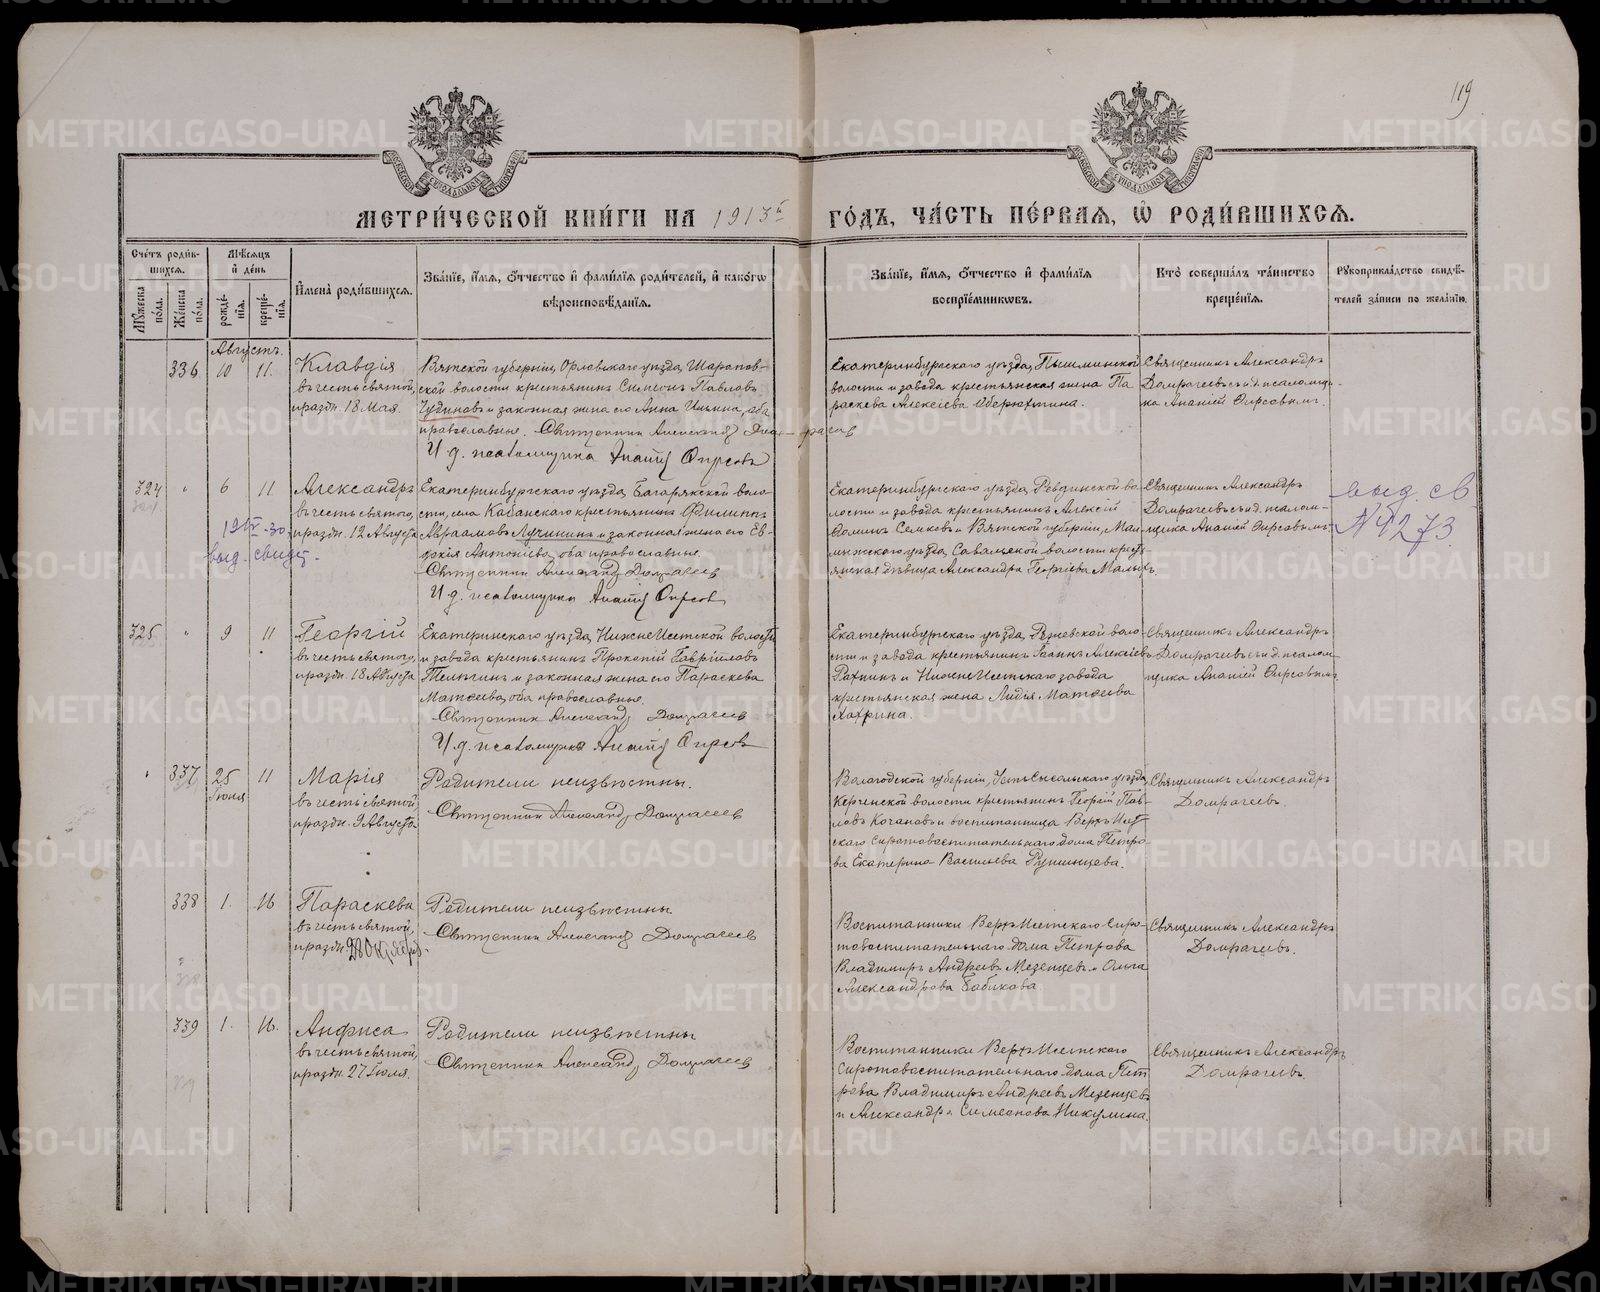 119
МЕТРИ́ЧЕСКОЙ КНИ́ГИ НА 1913й ГО́ДЪ, ЧА́СТЬ ПЕ́РВАЯ, Ѡ҆ РОДИ́ВШИХСЯ.
Сче́тъ роди́в-
шихся.
Мꙋжеска по́ла.
Же́нска по́ла.
Мѣ́сяцъ и҆ де́нь
рожде́-нїѧ.
креще́-нїѧ.
И҆мена̀ роди́вшихсѧ.
Зва́нїе, и҆́мѧ, ѻ҆́тчество и҆ фами́лїѧ роди́телей, и҆ како́гѡ
вѣроисповѣ́данїѧ.
Зва́нїе, и҆́мѧ, ѻ҆́тчество и҆ фами́лїѧ
воспрїе́мникѡвъ.
Кто̀ соверша́лъ та́инство
креще́нїѧ.
Рꙋкоприкла́дство свидѣ́-
телей за́писи по жела́нїю.
Августъ.
336 10 11.
Клавдія
въ честь святой,
праздн. 18 Мая.
Вятской губерніи, Орловскаго уѣзда, Шарапов-
ской волости крестьянинъ Симеонъ Павловъ
Чудиновъ и законная жена его Анна Ильина, оба
православные. Священникъ Александръ Домрачевъ
И. д. псаломщика Ананій Фирсовъ
Екатеринбургскаго уѣзда, Пышминской
волости и завода крестьянская жена Па
раскева Алексіева Оберюхтина.
Священникъ Александръ
Домрачевъ и и. д. псаломщи-
ка Ананій Фирсовъ.
324 " 6 11
Александръ
въ честь святого,
праздн. 12 Августа
выд. свидѣт.
Екатеринбургскаго уѣзда, Багарякской воло-
сти, села Кабанскаго крестьянинъ Филиппъ
Авраамовъ Лучининъ и законная жена его Ев-
докія Антоніева, оба православные.
Священникъ Александръ Домрачевъ
И. д. псаломщика Ананій Фирсовъ
Екатеринбургскаго уѣзда, Ревдинской во-
лости и завода крестьянинъ Алексій
Фоминъ Семковъ и Вятской губерніи, Мал
мыжскаго уѣзда, Савальской волости кресть
янская дѣвица Александра Георгіева Малыхъ.
Священникъ Александръ
Домрачевъ и и. д. псалом-
щика Ананій Фирсовъ.
выд. св
№ 4273
325 " 9 11
Георгій
въ честь святого,
праздн. 18 Августа
Екатеринскаго уѣзда, НижнеИсетской волости
и завода крестьянинъ Прокопій Гавріиловъ
Тельгинъ и законная жена его Параскева
Матѳеева, оба православные.
Священникъ Александръ Домрачевъ
И. д. псаломщика Ананій Фирсовъ
Екатеринбургскаго уѣзда, Режевской воло-
сти и завода крестьянинъ Іоаннъ Алексіевъ
Рахнинъ и НижнеИсетскаго завода
крестьянская жена Лидія Матѳеева
Хохрина.
Священникъ Александръ
Домрачевъ и и. д. псалом
щика Ананій Фирсовъ
" 337 25 Іюля 11
Марія
въ честь святой,
праздн. 9 Августа
Родители неизвѣстны.
Священникъ Александръ Домрачевъ
Вологодской губерніи, Устьсысольскаго уѣзда,
Керченской волости крестьянинъ Георгій Пав-
ловъ Кочановъ и воспитанница ВерхъИсет
скаго сиротовоспитательнаго дома Петро-
ва Екатерина Васильева Румянцева.
Священникъ Александръ
Домрачевъ.
338 1. 16
Параскева
въ честь святой,
праздн. 28 Октября.
Родители неизвѣстны
Священникъ Александръ Домрачевъ
Воспитанники ВерхъИсетскаго Сиро-
товоспитательнаго дома Петрова
Владимиръ Андреевъ Мезенцевъ и Ольга
Александрова Бабикова.
Священникъ Александръ
Домрачевъ.
339 1. 16.
Анфиса
въ честь святой,
праздн. 27 Іюля.
Родители неизвѣстны
Священникъ Александръ Домрачевъ
Воспитанники ВерхъИсетскаго
Сиротовоспитательнаго дома Пет
рова Владимиръ Андреевъ Мезенцевъ
и Александра Симеонова Никулина.
Священникъ Александръ
Домрачевъ.
METRIKI.GASO-URAL.RU